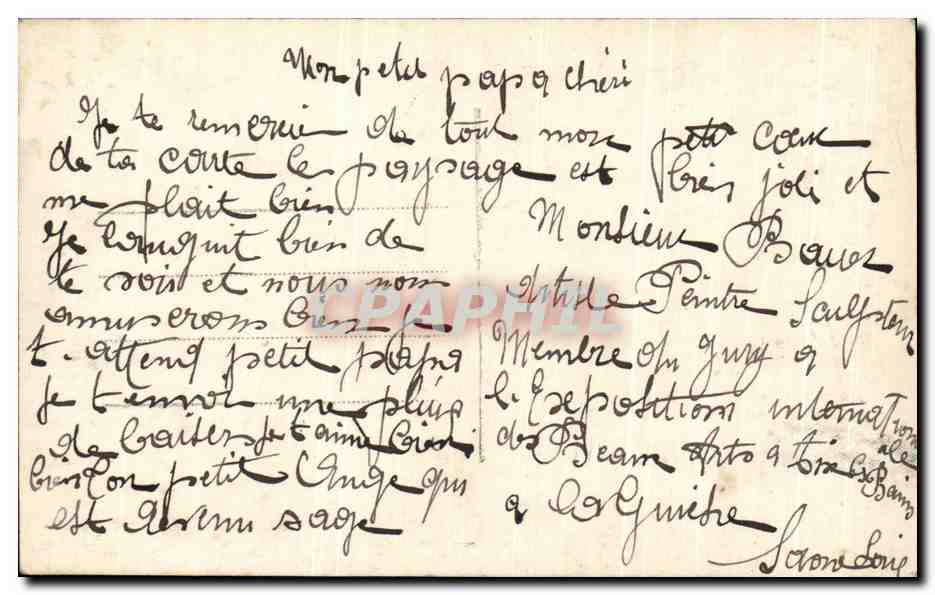 Mon petit papa chéri
Je te remercie de tout mon petit cœur
de ta carte le paysage est bien joli et
me plait bien
Je languit bien de
te voir et nous nous
amuserons bien je
t'attend petit papa
je t'envoi une pluie
de baisers je t'aime bien
bien ton petit Ange qui
est devenu sage
Monsieur
Artiste Peintre Sculpteur
Membre du Jury a
l'Exposition internationale
des Beaux Arts a Aix les Bains
a la Guiche
Saone Loire
CPAPHIL